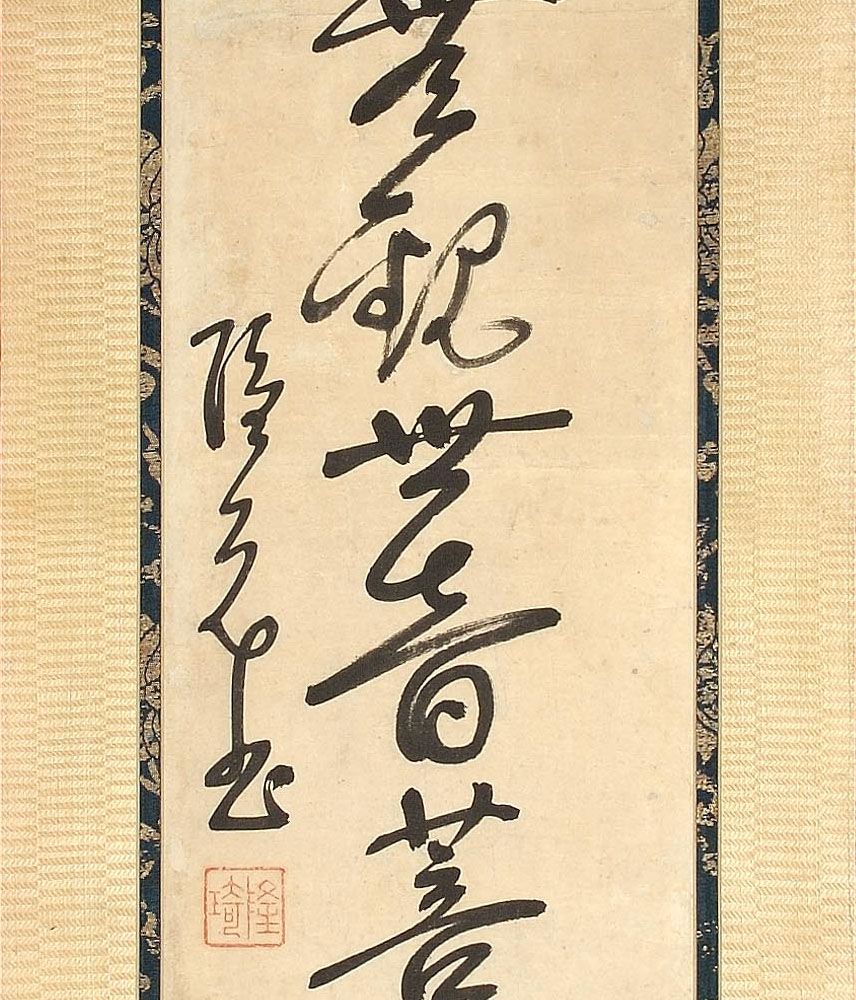 無觀世音菩
隱元書
隆琦